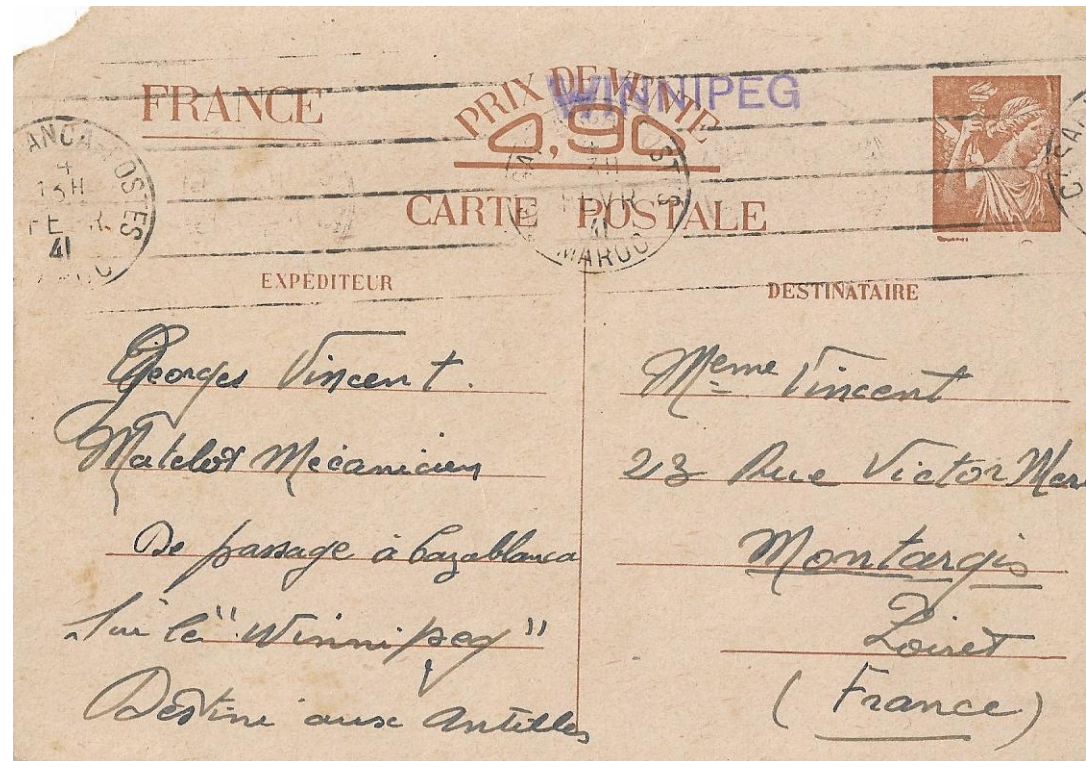 WINNIPEG
FRANCE
PRIX DE VENTE
0,90
CARTE POSTALE
ANCA-POSTES
4
13H
FEVR.
41
ST
S
FEVR
41
MAROC
EXPÉDITEUR
Georges Vincent.
Matelot Mécanicien
De passage à Cazablanca
Sur le "Winnipeg"
Destiné aux Antilles
DESTINATAIRE
Meme Vincent
23 Rue Victor
Montargis
Loiret
(France)